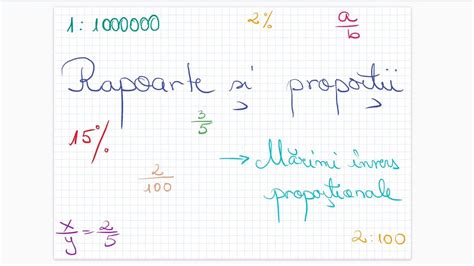 1 : 1000000
2%
a/b
Rapoarte și proporții
3/5
15%
2/100
→ Mărimi invers
proporționale
x/y = 2/5
2 : 100